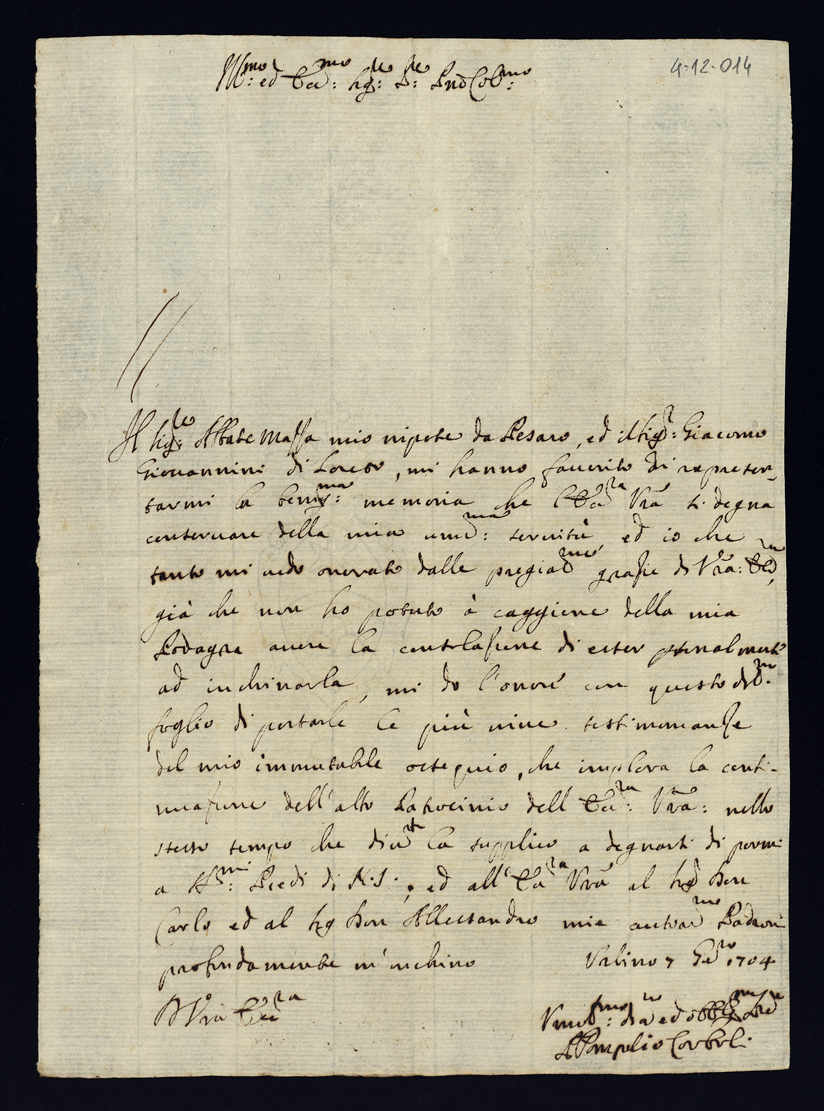 Ill:mo ed Ecc:mo Sig:re P:re Pnd Col:mo
4-12-014
Il Sig:re Abbate Massa mio nipote da Pesaro, ed il Sig:r Giacomo
Giovannini di Loreto, mi hanno favorito di represen-
tarmi la benig:ma memoria che l'Ecc:za Vra si degna
conservare della mia um:ma servitù, ed io che
tanto mi vedo onorato dalle pregiat:me grazie di Vra: Ecc:za,
già che non ho potuto à caggione della mia
Podagra avere la consolazione di esser personalmente
ad inchinarla, mi do l'onore con questo
foglio di portarle le più vive testimonianze
del mio immutabile ossequio, che implora la conti-
nuazione dell'alto Patrocinio dell'Ecc:za Vrã: nello
stesso tempo che la supplico a degnarsi di pormi
a SS:mi Piedi di N.S:, ed all'Ecc:za Vrã al Sig Don
Carlo, ed al Sig Don Alessandro miei Padroni
profondamente m'inchino Urbino 7 Gen:ro 1704
D Vra Ecc:za
Umil:mo ed obblig:mo
Pompilio Corboli